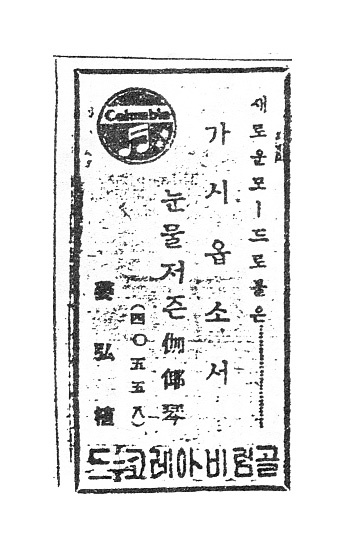 Columbia
새로운모ー드로불은……
가시옵소서
눈물저즌伽倻琴
(四〇五五八)
姜弘植
골럼비아레코ー드